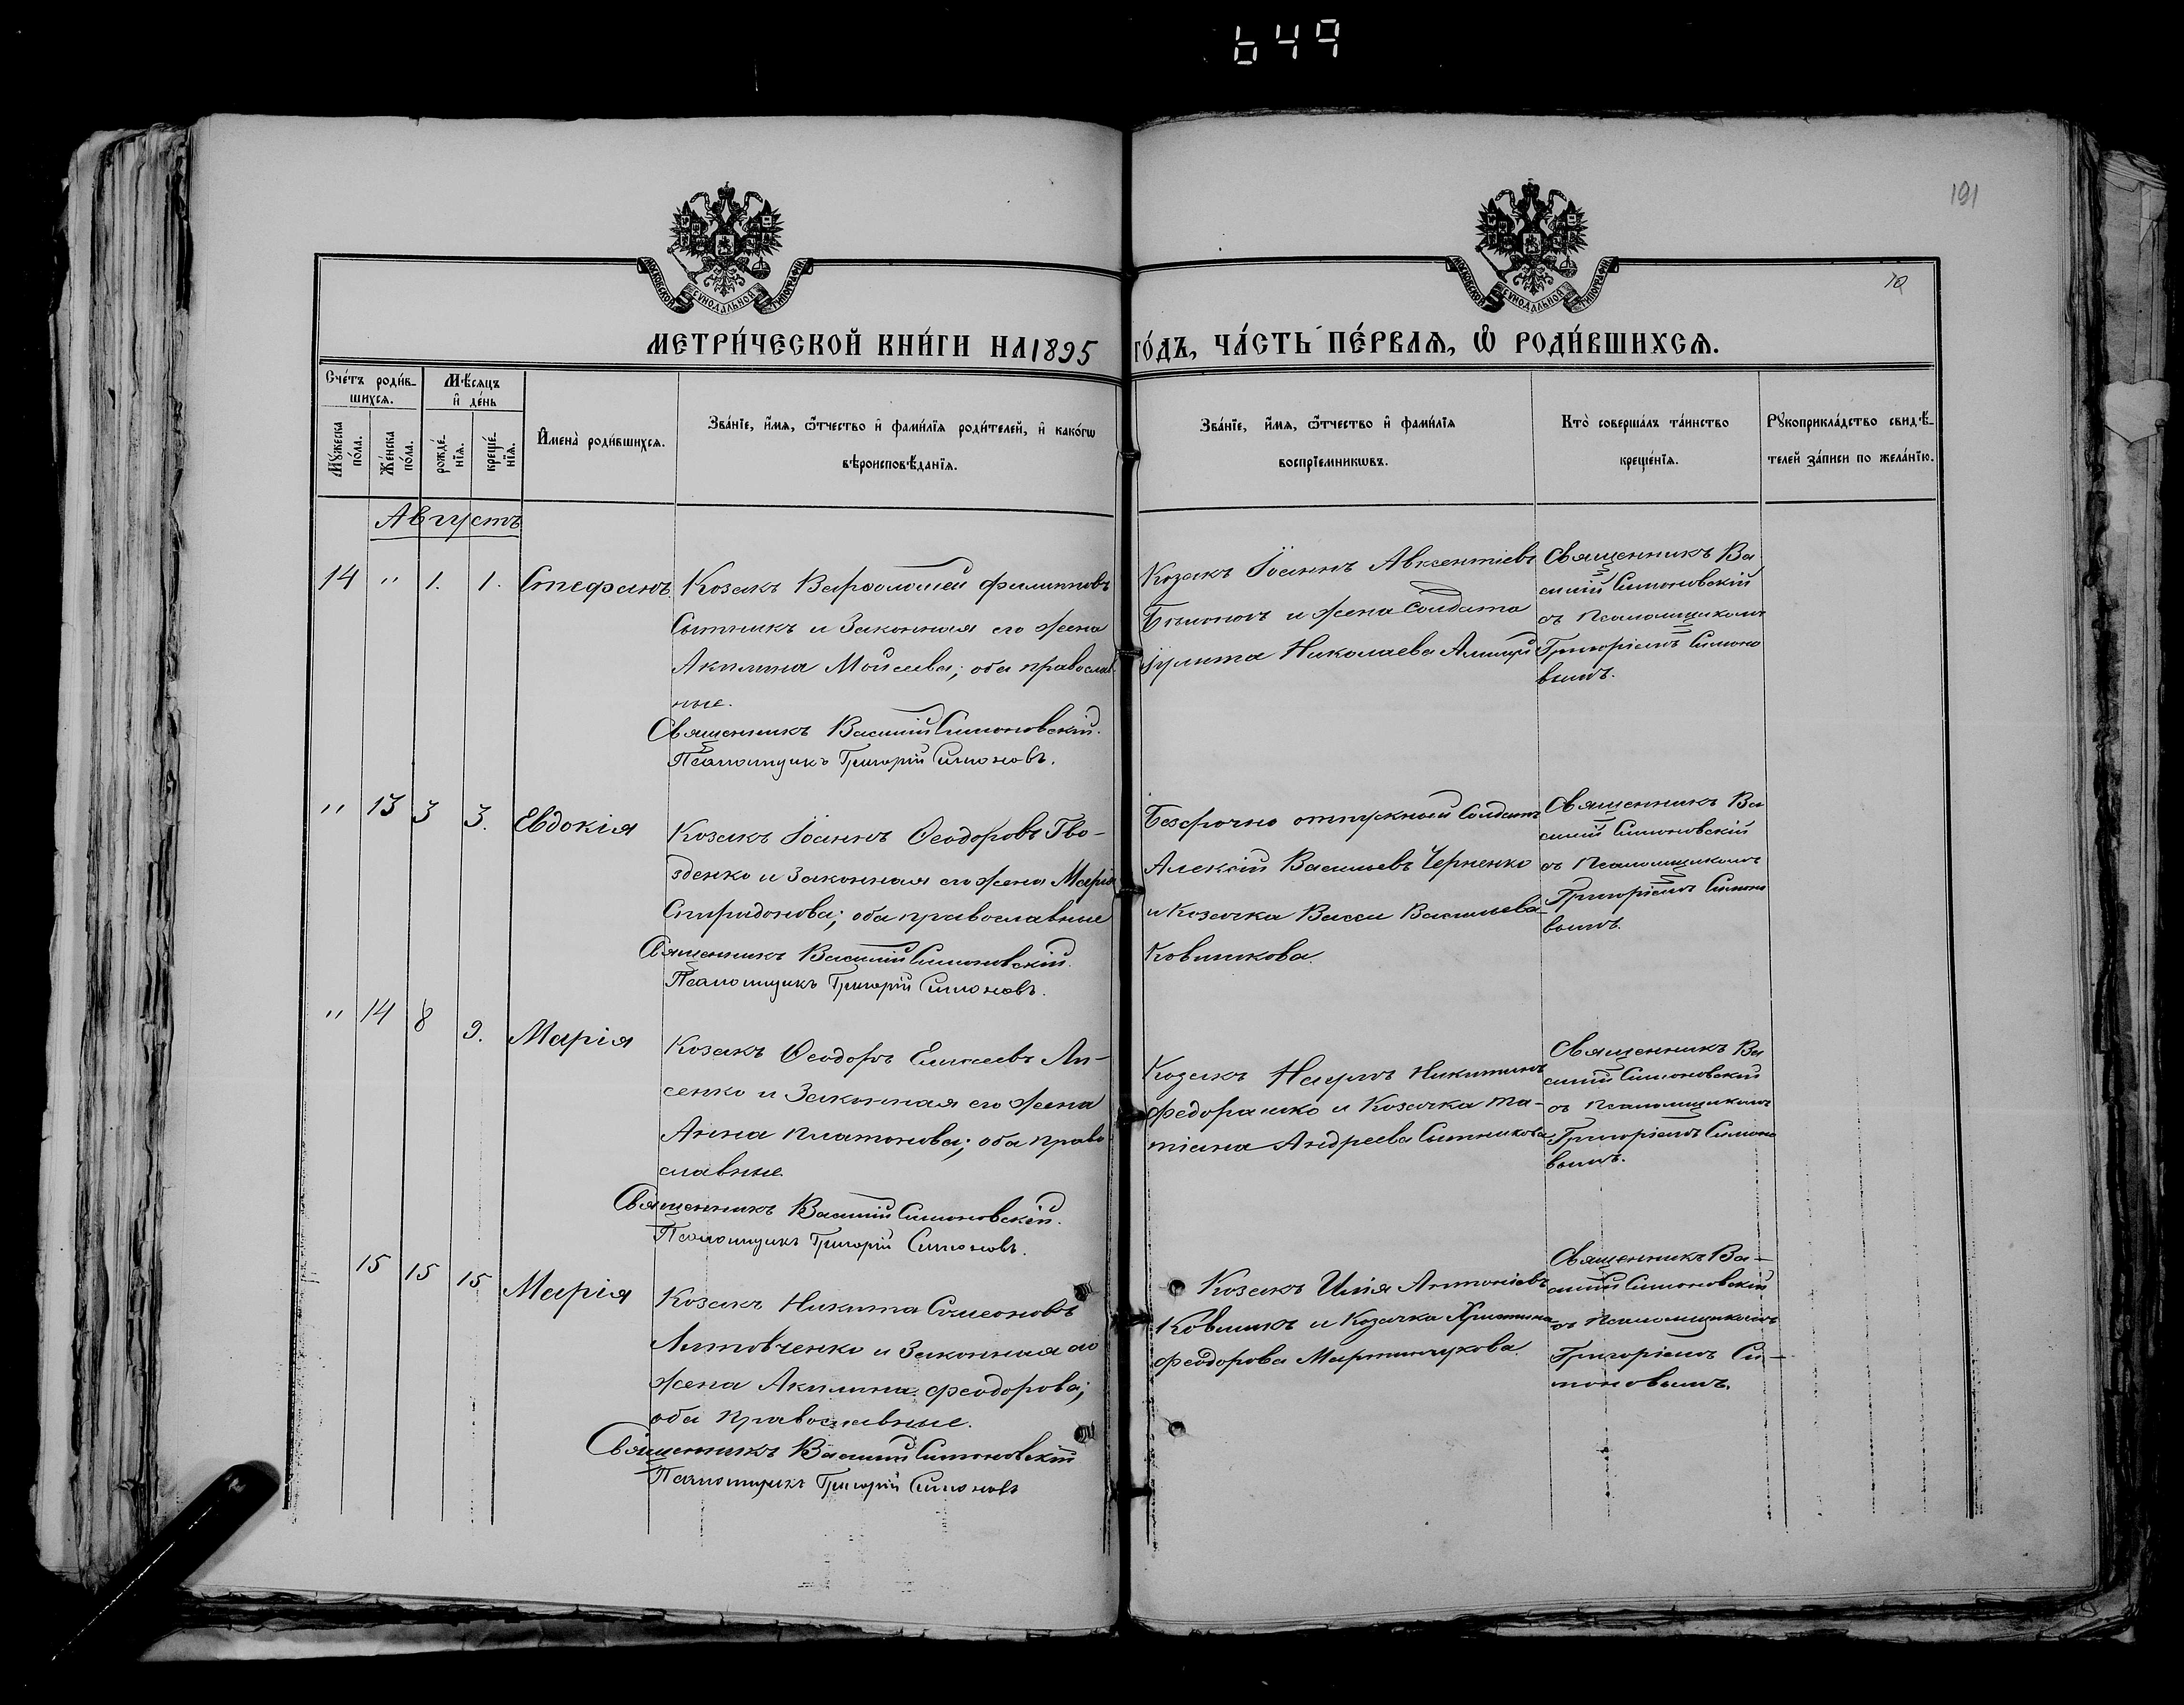 649
191
10
МОСКОВСКОЙ СѴНОДАЛЬНОЙ ТИПОГРАФІИ
МОСКОВСКОЙ СѴНОДАЛЬНОЙ ТИПОГРАФІИ
МЕТРИ́ЧЕСКОЙ КНИ́ГИ НА 1895 ГО́ДЪ, ЧА́СТЬ ПЕ́РВАЯ, Ѡ РОДИ́ВШИХСЯ.
Сче́тъ роди́в-
шихся.
Мѣ́сяцъ
и҆ де́нь
Му́жеска
по́ла.
Же́нска
по́ла.
рожде́-
нїя.
креще́-
нїя.
И҆мена̀ роди́вшихся.
Зва́нїе, и҆́мя, ѻ҆́тчество и҆ фами́лїя роди́телей, и҆ како́гѡ
вѣроисповѣ́данїя.
Зва́нїе, и҆́мя, ѻ҆́тчество и҆ фами́лїя
воспрїе́мникѡвъ.
Кто̀ соверша́лъ та́инство
креще́нїя.
Рꙋкоприкла́дство свидѣ́-
телей за́писи по жела́нїю.
Августъ
14 " 1. 1. Стефанъ.
Козакъ Варѳоломей Филипповъ
Сытникъ и Законная его жена
Акилина Мойсеева; оба православ
ные.
Священникъ Василій Симоновскій.
Псаломщикъ Григорій Симоновъ.
Козакъ Іоаннъ Авксентіевъ
и жена Солдата
Іулита Николаева
Священникъ Ва
силій Симоновскій
съ Псаломщикомъ
Григоріемъ Симоно
вымъ.
" 13 3 3. Евдокія
Козакъ Іоаннъ Ѳеодоровъ Гво-
зденко и Законная его жена Марія
Спиридонова; оба православные
Священникъ Василій Симоновскій.
Псаломщикъ Григорій Симоновъ.
Безсрочно отпускной Солдатъ
Алексій Васильевъ Черненко
и Козачка Васса Васильева
Ковшикова.
Священникъ Ва
силій Симоновскій
съ Псаломщикомъ
Григоріемъ Симоно
вымъ.
" 14 8 9. Марія
Козакъ Ѳеодоръ Елисеевъ Ли-
сенко и Законная его жена
Анна Платонова; оба право
славные.
Священникъ Василій Симоновскій.
Псаломщикъ Григорій Симоновъ.
Козакъ Наумъ Никитинъ
Федорашко и Козачка Та-
тіана Андреева Сытникова
Священникъ Ва
силій Симоновскій
съ Псаломщикомъ
Григоріемъ Симоно
вымъ.
15 15 15 Марія
Козакъ Никита Сѵмеоновъ
Литовченко и Законная его
жена Акилина Феодорова;
оба Православные.
Священникъ Василій Симоновскій
Псаломщикъ Григорій Симоновъ
Козакъ Илія Антоніевъ
Ковшикъ и Козачка Христина
Феодорова Мартинчукова.
Священникъ Ва-
силій Симоновскій
съ Псаломщикомъ
Григоріемъ Си-
моновымъ.